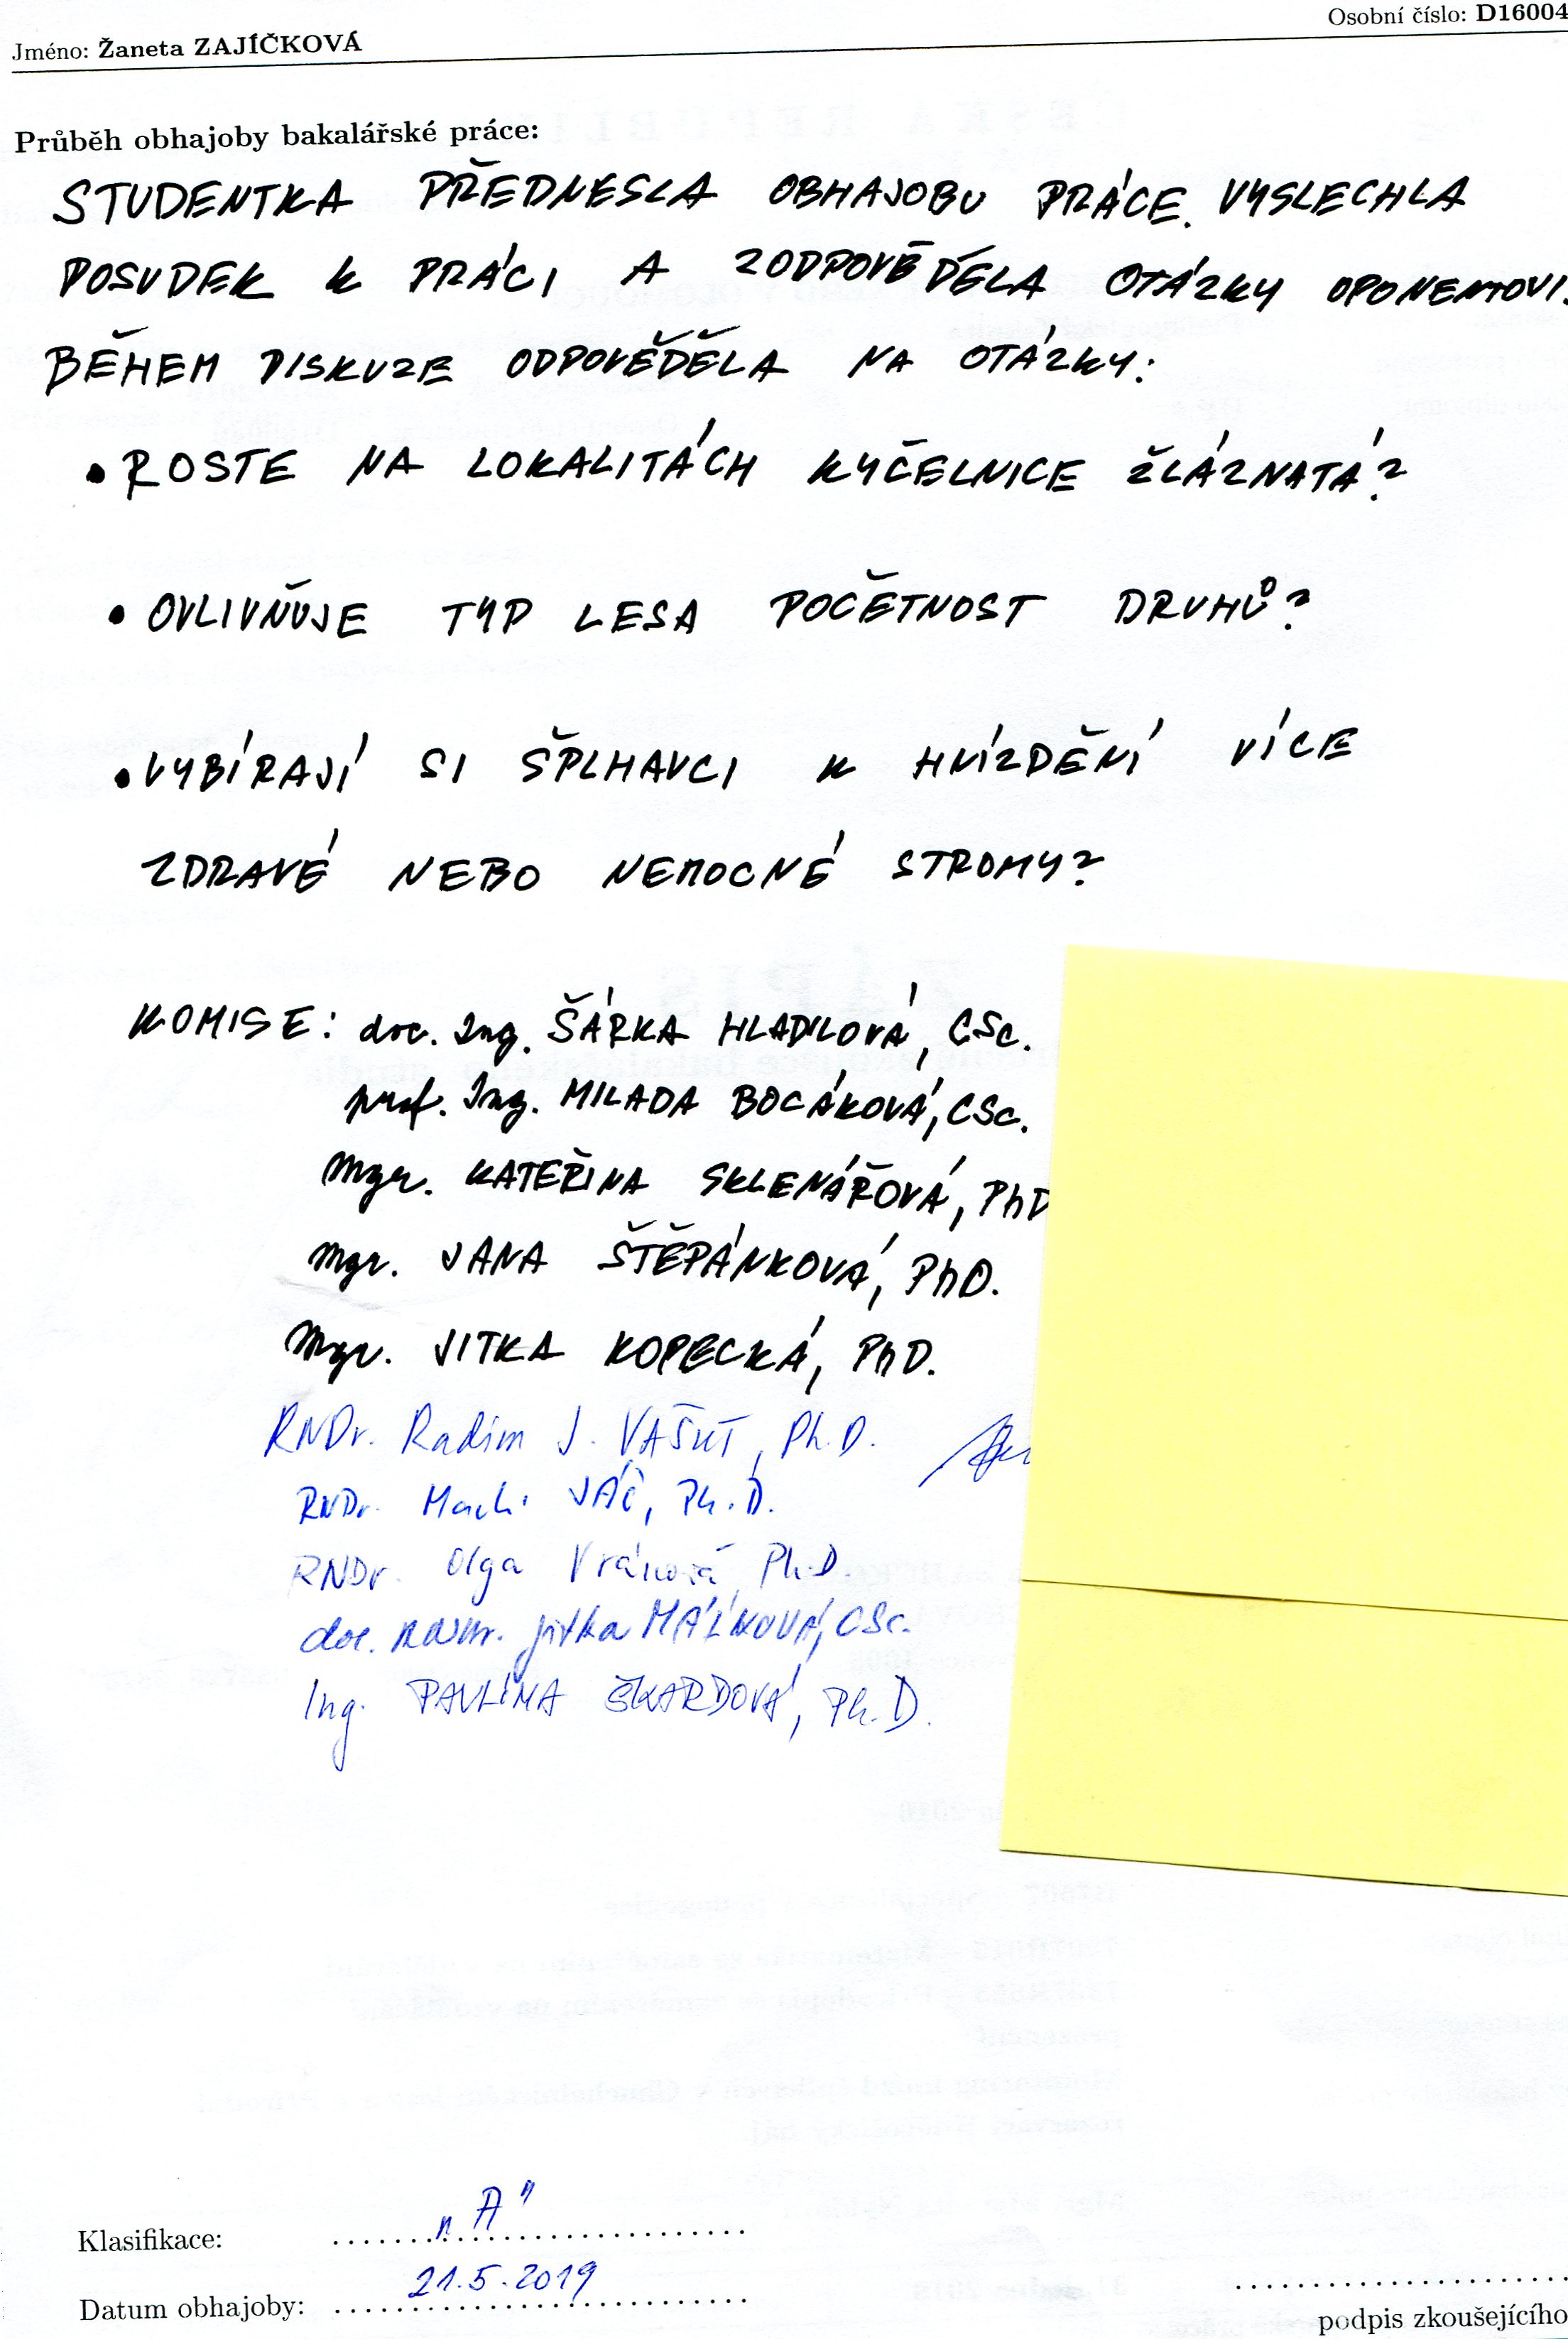 Jméno: Žaneta ZAJÍČKOVÁ Osobní číslo: D16004
Průběh obhajoby bakalářské práce:
STUDENTKA PŘEDNESLA OBHAJOBU PRÁCE. VYSLECHLA
POSUDEK K PRÁCI A ZODPOVĚDĚLA OTÁZKY OPONENTOVI.
BĚHEM DISKUZE ODPOVĚDĚLA NA OTÁZKY:
• ROSTE NA LOKALITÁCH KYČELNICE ŽLÁZNATÁ?
• OVLIVŇUJE TYP LESA POČETNOST DRUHŮ?
• VYBÍRAJÍ SI ŠPLHAVCI K HNÍZDĚNÍ VÍCE
ZDRAVÉ NEBO NEMOCNÉ STROMY?
KOMISE: doc. Ing. ŠÁRKA HLADILOVÁ, CSc.
prof. Ing. MILADA BOCÁKOVÁ, CSc.
Mgr. KATEŘINA SKLENÁŘOVÁ, PhD
Mgr. JANA ŠTĚPÁNKOVÁ, PhD.
Mgr. JITKA KOPECKÁ, PhD.
RNDr. Radim J. VAŠUT, Ph.D.
RNDr. JÁČ, Ph.D.
RNDr. Olga Vránová Ph.D.
doc. RNDr. Jitka MÁLKOVÁ, CSc.
Ing. PAVLÍNA ŠKARDOVÁ, Ph.D.
Klasifikace: „A"
Datum obhajoby: 21.5.2019
podpis zkoušejícího